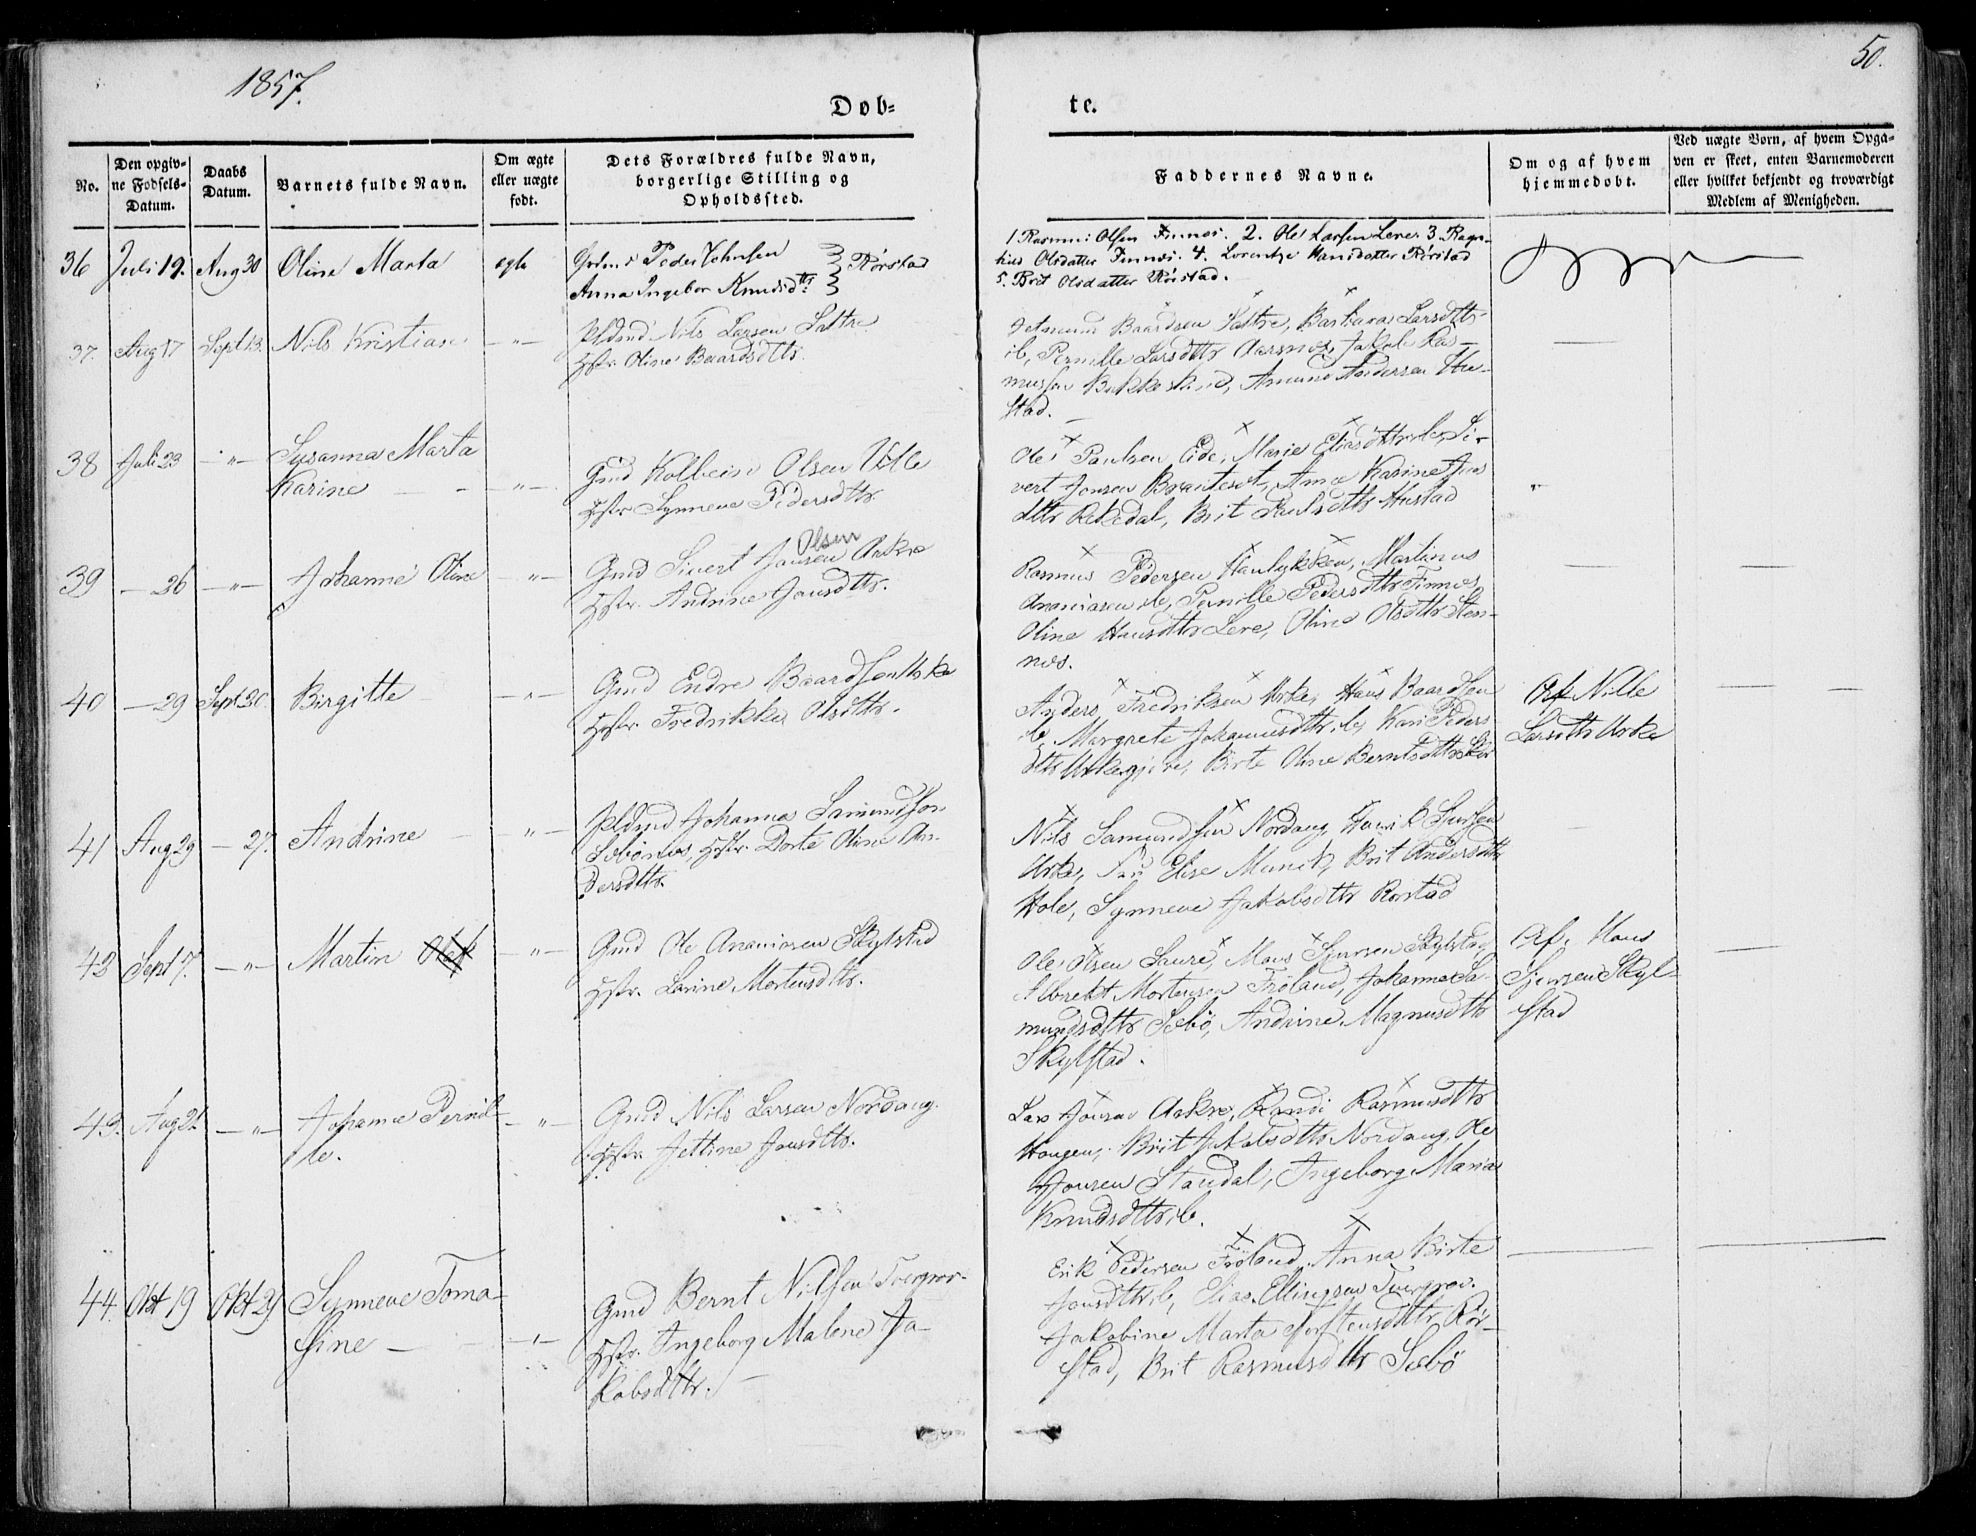 1857.
50.
Døb=
te.
No.
Den opgiv-
ne Fødsels-
Datum.
Daabs
Datum.
Barnets fulde Navn.
Om ægte
eller uægte
født.
Dets Forældres fulde Navn,
borgerlige Stilling og
Opholdssted.
Faddernes Navne.
Om og af hvem
hjemmedøbt.
Ved uægte Børn, af hvem Opga-
ven er skeet, enten Barnemoderen
eller hvilket bekjendt og troværdigt
Medlem af Menigheden.
36 Juli 19. Aug 30 Oline Marta egte
Peder Johnsen
Anna Ingebor Knudsd.tr
Rørstad
1. Rasmus Olsen Finnes. 2. Ole Larsen Lere 3. Ragn-
hild Olsdatter Finnes. 4. Lorentze Hansdatter Rørstad
5. Brit Olsdatter Rørstad.
37. Aug 17 Sept 13. Nils Kristian -"-
Nils Larsen Sætre
Hstr Oline Baardsdttr.
Baardsen Sætre, Barbara Larsdttr
ib, Pernille Larsdttr Aarsnes, Jakob Ras-
mussen Bakkeskred, Amund Andersen Hu-
stad.
38 Juli 23 -"- Susanna Marta
Karine -"-
Gmd Kolbein Olsen Ville
Hstr Synneve Pedersdttr
Ole Paulsen Eide, Marie Eliasdttr ib, Si-
vert Jonsen Brauteset, Anna Karine Jens
dttr Rekkedal, Brit Paulsdttr Hustad
39 - 26 -"- Johanne Oline -"-
Olsen
Gmd Sivert Jonsen Aakre
Hstr. Andrine Jonsdttr.
Rasmus Pedersen Hanlykken, Martinus
Ananiasen ib, Pernille Pedersdttr Finnes,
Oline Hansdttr Lere, Oline Olsdttr Sten-
nes.
40 - 29 Sept 20. Birgitte -"-
Gmd Endre Baardsen Urke
Hstr Fredrikke Olsdttr.
Anders Fredriksen Urke, Hans Baardsen
ib, Margrete Johannesdttr ib, Kari Peders
dttr Urkegjere, Birte Oline Berntsdttr Skor
Af Nille
Larsdttr Urke
41 Aug 29 - 27. Andrine -"-
Pldmd Johannes Samundsen
Sæbønes, Hstr. Dorte Oline An-
dersdttr.
Nils Samundsen Nordang, Henrik Sjursen
Urke, Elise Munch, Brit Andersdttr
Hole, Synneve Jakobsdttr Rørstad
42 Sept 7. -"- Martin -"-
Gmd Ole Ananiasen Skylstad
Hstr. Larine Mortensdttr.
Ole Olsen Saure, Mons Sjursen Skylstad,
Albrekt Mortensen Frøland, Johanne Sa-
mundsdttr Sæbø, Andrine Magnusdttr
Skylstad.
Af Mons
Sjursen Skyl-
stad
43. Aug 21 -"- Johanne Pernil-
le. -"-
Gmd Nils Larsen Nordang.
Hstr. Jettine Jonsdttr.
Lars Jonsen Aakre, Randi Rasmusdttr
Haugen, Brit Jakobsdttr Nordang, Ole
Jonsen Standal, Ingeborg Maria
Knudsdttr ib.
44. Okt 19 Okt 29 Synneve Toma-
sine - -"-
Gmd Bernt Nilsen Tvergrov-
Hstr. Ingeborg Malene Ja-
kobsdttr. -
Erik Pedersen Frøland, Anna Birte
Jonsdttr ib, Elias Ellingsen Tvergrov.
Jakobine Marta Torstensdttr Rør-
stad, Brit Rasmusdttr Sæbø